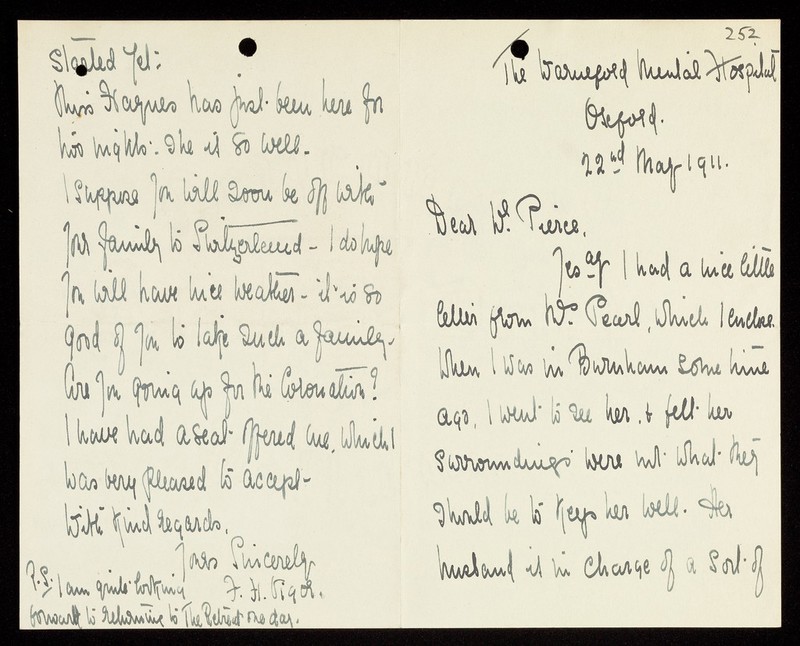 252
The Warneford Mental Hospital
Oxford.
22nd May 1911.
Dear Dr. Pierce,
Yesday I had a nice little
letter from Mrs. Pearl, which I enclose.
When I was in Burnham some time
ago, I went to see her, & felt her
surroundings were not what they
should be to keep her well. Her
husband is in charge of a sort of
started yet:
Miss Haynes has just been here for
two nights: She is so well.
I suppose you will soon be off with
your family to Switzerland - I do hope
you will have nice weather - it is so
good of you to take such a family -
Are you going up for the Coronation?
I have had a seat offered me, which I
was very pleased to accept -
With kind regards,
Yours Sincerely
F. H. Vigor.
P.S. I am quite looking
forward to returning to The Retreat one day.